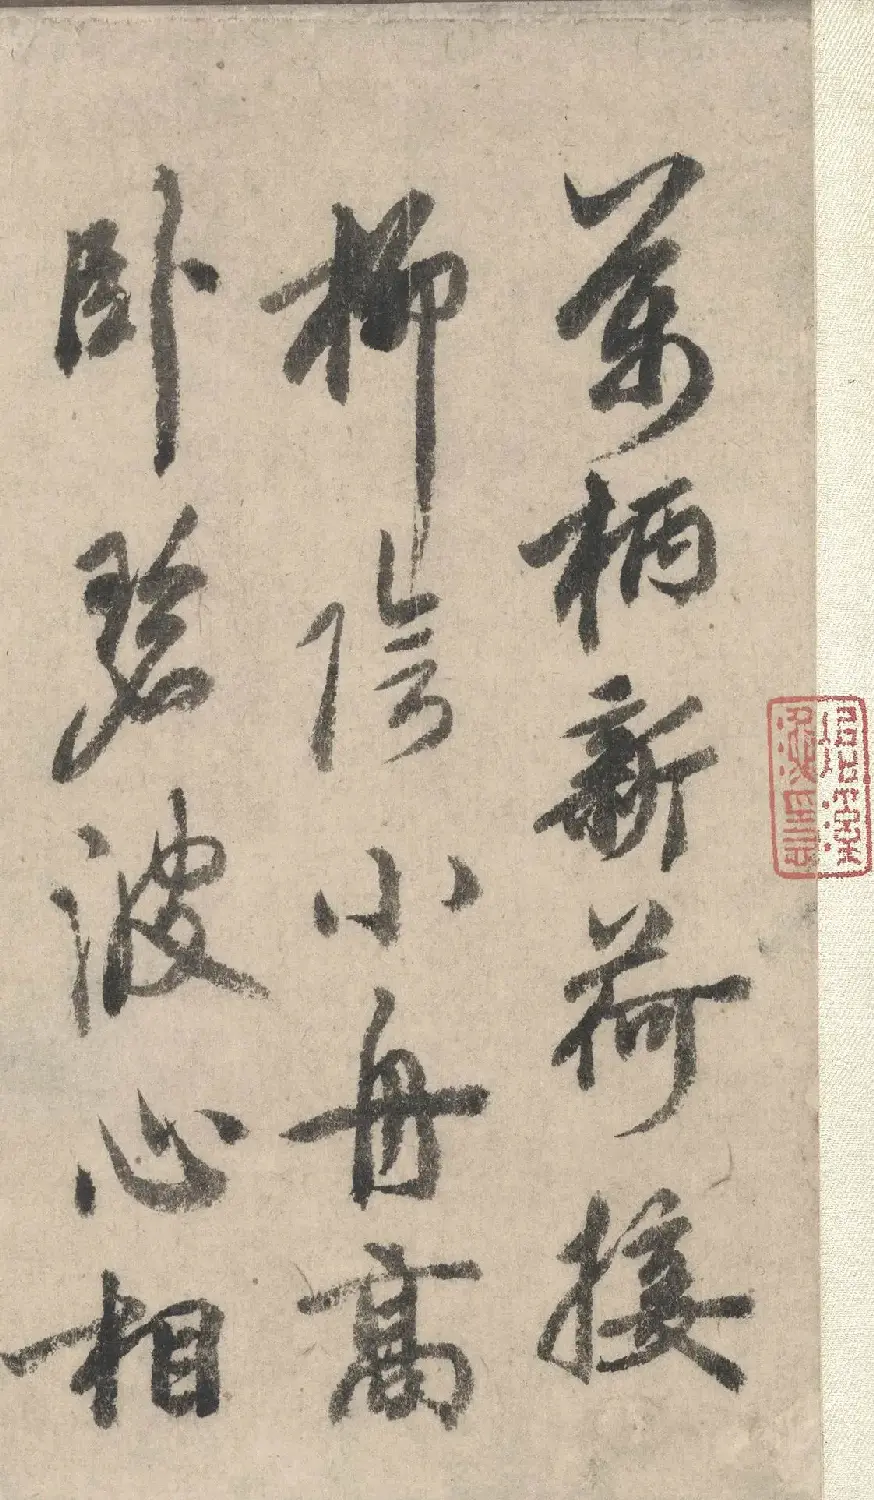 萬柄新荷接
柳陰小舟高
臥碧波心相